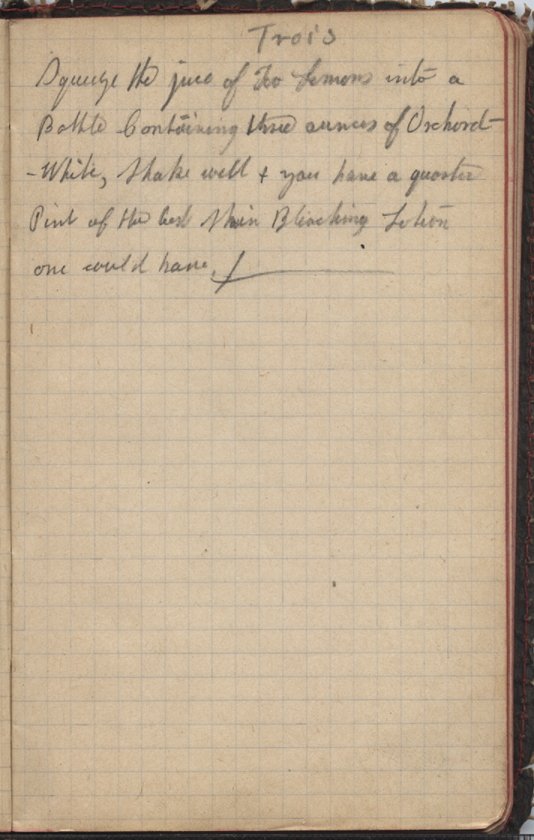 Trois
Squeege the juce of two Lemons into a
Bottle Containing three ounces of Orchord-
-White, Shake well & you have a quarter
Pint of the best Skin Bleaching Lotion
one could have.